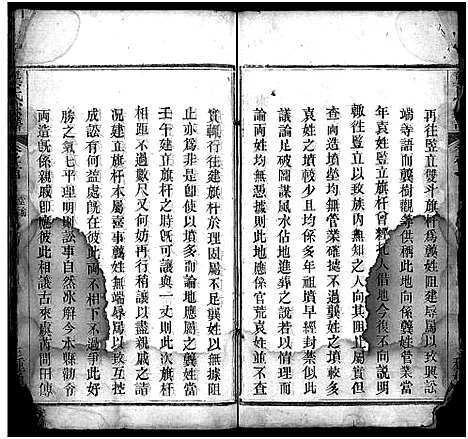 再往豎立雙斗旗杆爲龔姓阻建辱屬以致興訟
端等語而龔樹觀等供稱此地向係龔姓管業當
年袁姓豎立旗杆曾經扎人借地今復不向說明
輙往豎立以致族内無知之人向其阻止屬實但
查向造墳塋並無管業確據不過龔姓之墳較多
袁姓之墳較少均係多年祖墳早經封禁似此
議論足破圖謀風水佔地進葬之說
論兩姓均無憑據則此地應係官荒袁姓並無
實輒行往建旗杆於理固屬不足龔姓無據阻
止亦爲非是即以墳塋多而論地應屬龔姓當
壬午建立旗杆之時旣可讓與一丈則此次旗杆
相距不過數尺又何妨再行稍讓以盡親戚之誼
况建立旗杆本屬喜事龔姓無端辱屬以致互控
成訟有何益處旣在彼此祠不下不過爭此好
勝之氣七平理明則訟事自然冰解今本縣勸令
兩造旣係親戚卽應彼此相讓古來虞芮間田傳